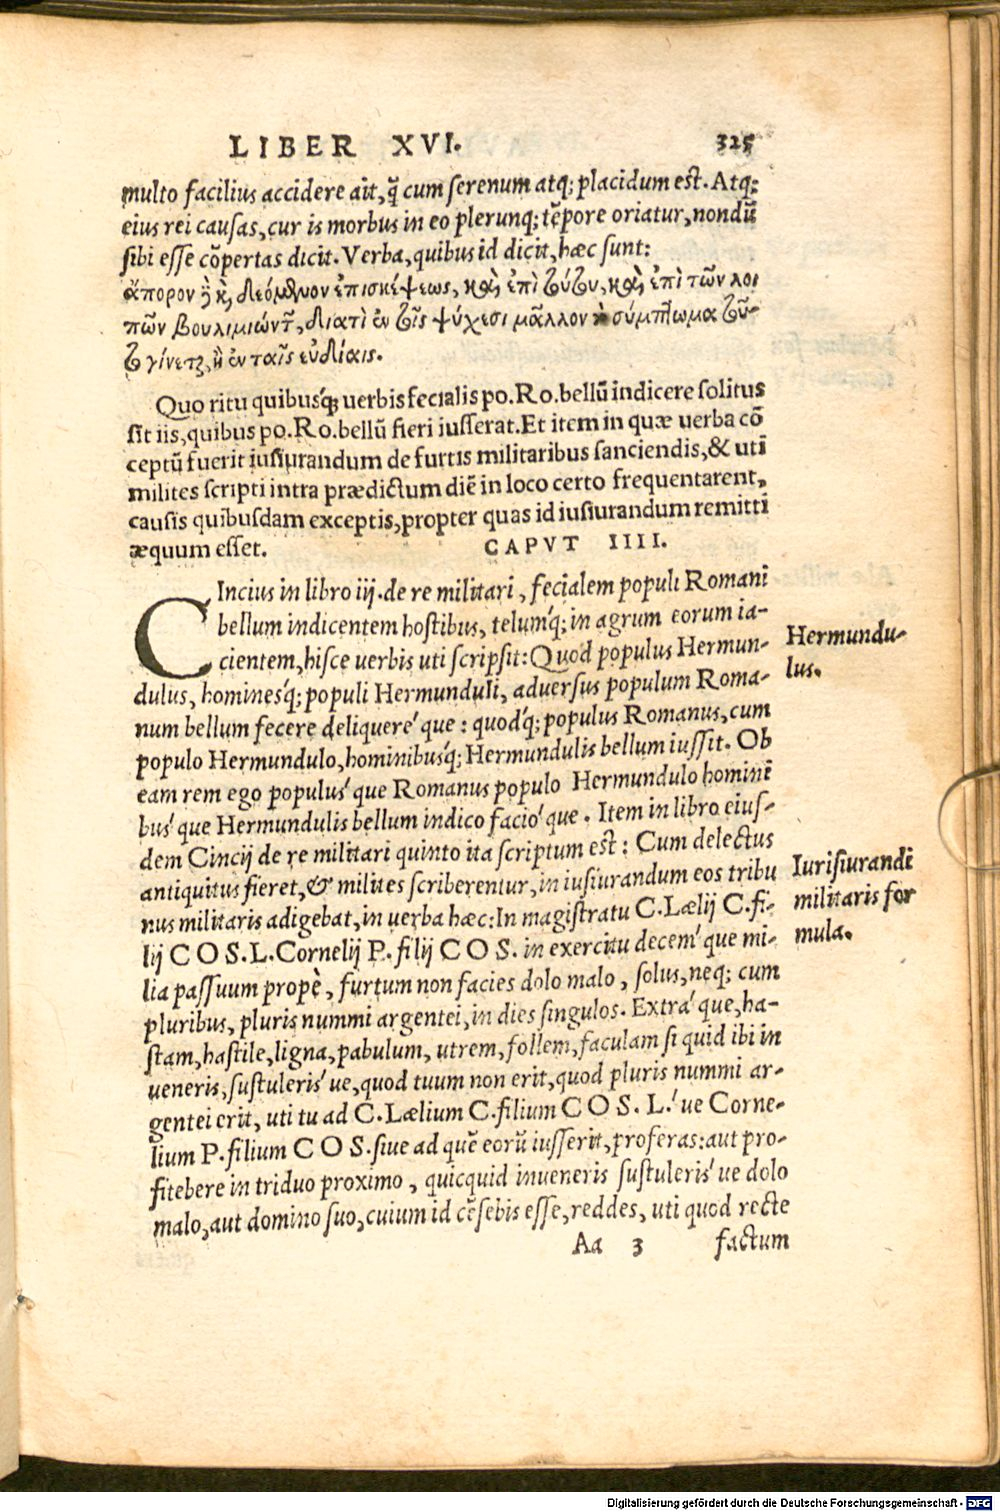 LIBER XVI. 325
multo facilius accidere ait, q̃ cum serenum atq; placidum est. Atq;
eius rei causas, cur is morbus in eo plerunq; tẽpore oriatur, nondũ
sibi esse cõpertas dicit. Verba, quibus id dicit, hæc sunt:
ἄπορον ἢ καὶ δεόμενον ἐπισκέψεως, καὶ ἐπὶ τούτου, καὶ ἐπὶ τῶν λοι
πῶν βουλιμιώντ, διατὶ ἐν τοῖς ψύχεσι μᾶλλον ὸ σύμπτωμα τοῦ-
το γίνεται, ἢ ἐν ταῖς εὐδίαις.
Quo ritu quibusq́; uerbis fecialis po. Ro. bellũ indicere solitus
sit iis, quibus po. Ro. bellũ fieri iusserat. Et item in quæ uerba cõ
ceptũ fuerit iusiurandum de furtis militaribus sanciendis, & uti
milites scripti intra prædictum diẽ in loco certo frequentarent,
causis quibusdam exceptis, propter quas id iusiurandum remitti
æquum esset. CAPVT IIII.
CIncius in libro iij. de re militari, fecialem populi Romani
bellum indicentem hostibus, telumq́; in agrum eorum ia-
cientem, hisce uerbis uti scripsit: Quod populus Hermun-
dulus, hominesq́; populi Hermunduli, aduersus populum Roma-
num bellum fecere deliquere´que: quodq́; populus Romanus, cum
populo Hermundulo, hominibusq́; Hermundulis bellum iussit. Ob
eam rem ego populus´que Romanus populo Hermundulo homini
bus´que Hermundulis bellum indico facio´que. Item in libro eius-
dem Cincij de re militari quinto ita scriptum est: Cum delectus
antiquitus fieret, & milites scriberentur, in iusiurandum eos tribu
nus militaris adigebat, in uerba hæc: In magistratu C. Lælij C. fi-
lij COS. L. Cornelij P. filij COS. in exercitu decem´que mi-
lia passuum propè, furtum non facies dolo malo, solus, neq; cum
pluribus, pluris nummi argentei, in dies singulos. Extra´que, ha-
stam, hastile, ligna, pabulum, utrem, follem, faculam si quid ibi in
ueneris, sustuleris´ue, quod tuum non erit, quod pluris nummi ar-
gentei erit, uti tu ad C. Lælium C. filium COS. L.´ue Corne-
lium P. filium COS. siue ad quẽ eorũ iusserit, proferas: aut pro-
fitebere in triduo proximo, quicquid inueneris sustuleris´ue dolo
malo, aut domino suo, cuium id cẽsebis esse, reddes, uti quod recte
Aa 3 factum
Hermundu-
lus.
Iurisiurandi
militaris for
mula.
Digitalisierung gefördert durch die Deutsche Forschungsgemeinschaft - DFG